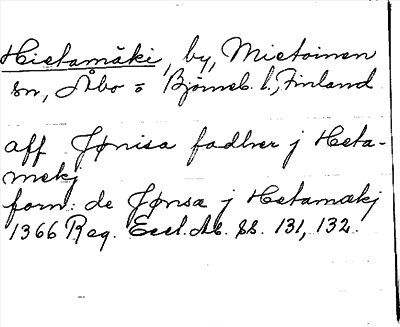 Hietamäki, by, Mietoinen
sn, Åbo o Björneb. l., Finland
aff Jønisa fadher j Heta-
mekj
forn: de Jønsa j Hetamækj
1366 Reg. Eccl. Ab. ss. 131, 132.